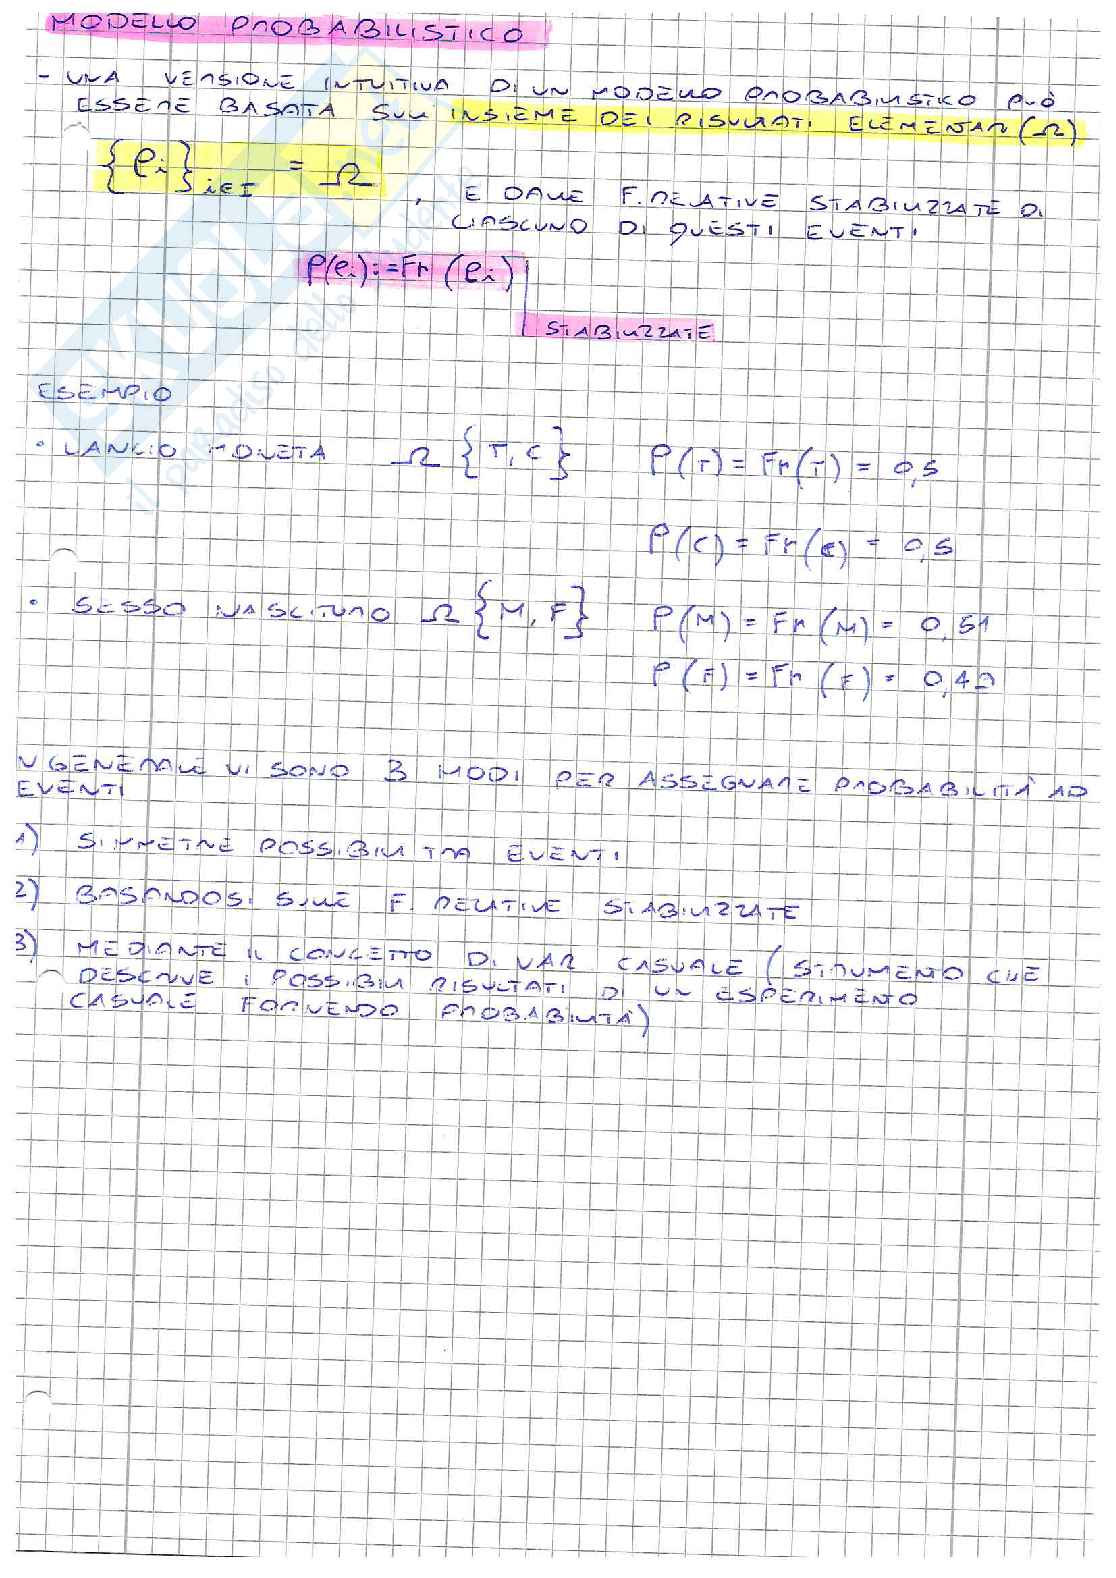 MODELLO PROBABILISTICO
- UNA VERSIONE INTUITIVA DI UN MODELLO PROBABILISTICO PUÒ
ESSERE BASATA SULL INSIEME DEI RISULTATI ELEMENTARI (Ω)
{ei}i∈I = Ω
, E DALLE F. RELATIVE STABILIZZATE DI
CIASCUNO DI QUESTI EVENTI
P(ei):=Fr(ei)|
STABILIZZATE
ESEMPIO
• LANCIO MONETA Ω {T, C} P(T) = Fr(T) = 0,5
P(C) = Fr(C) = 0,5
• SESSO NASCITURO Ω {M, F} P(M) = Fr(M) = 0,51
P(F) = Fr(F) = 0,49
N GENERALE VI SONO 3 MODI PER ASSEGNARE PROBABILITÀ AD
EVENTI
1) SIMMETRIE POSSIBILI TRA EVENTI
2) BASANDOSI SULLE F. RELATIVE STABILIZZATE
3) MEDIANTE IL CONCETTO DI VAR CASUALE (STRUMENTO CHE
DESCRIVE I POSSIBILI RISULTATI DI UN ESPERIMENTO
CASUALE FORNENDO PROBABILITÀ)
il paradiso dello studente